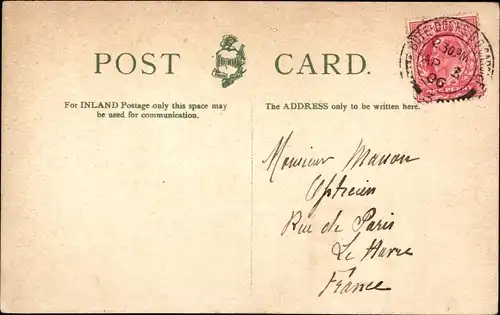 POST CARD.
For INLAND Postage only this space may
be used for communication.
The ADDRESS only to be written here.
2 30 PM
AP 3
06
Monsieur Masson
Opticien
Rue de Paris
Le Havre
France